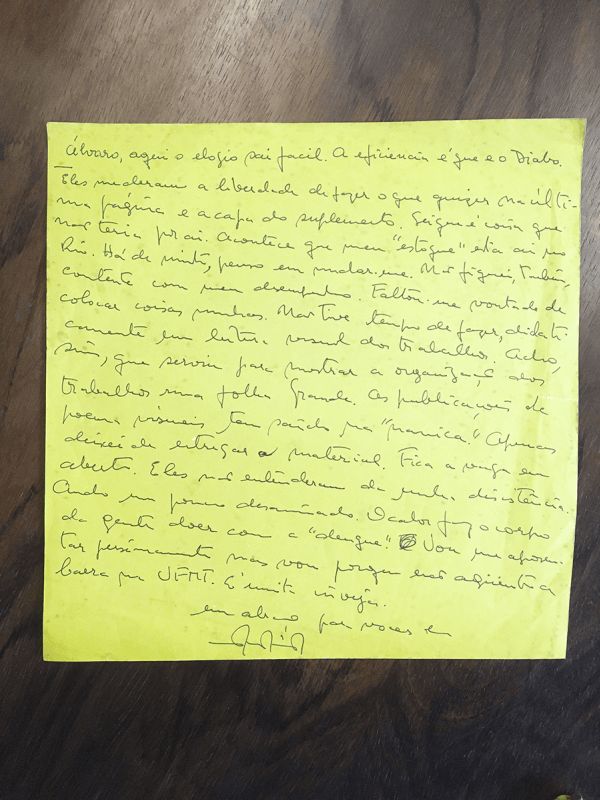 Álvaro, aqui o elogio sai facil. A eficiencia é que é o Diabo.
Eles me deram a liberdade de fazer o que quizer na últi-
ma página e a capa do suplemento. Sei que é coisa que
não teria por ai. Acontece que meu "estoque" está ai no
Rio. Há de minto, penso em mudar-me. Não fiquei, também,
contente com meu desempenho. Faltou-me vontade de
colocar coisas minhas. Mas tive tempo de fazer, didati-
camente uma leitura visual dos trabalhos. Acho,
sim, que serviu para mostrar a organização dos
trabalhos numa folha Grande. As publicações de
poema visuais tem saído na "nanica". Apenas
deixei de entregar o material. Fica a vaga em
aberto. Eles não entenderam da minha desistência.
Ando um pouco desanimado. O calor faz o corpo
da gente doer com a "dengue". Vou me aposen-
tar precisamente mas vou porque não aguento a
barra na UFMT. É muita inveja.
um abraço para voces